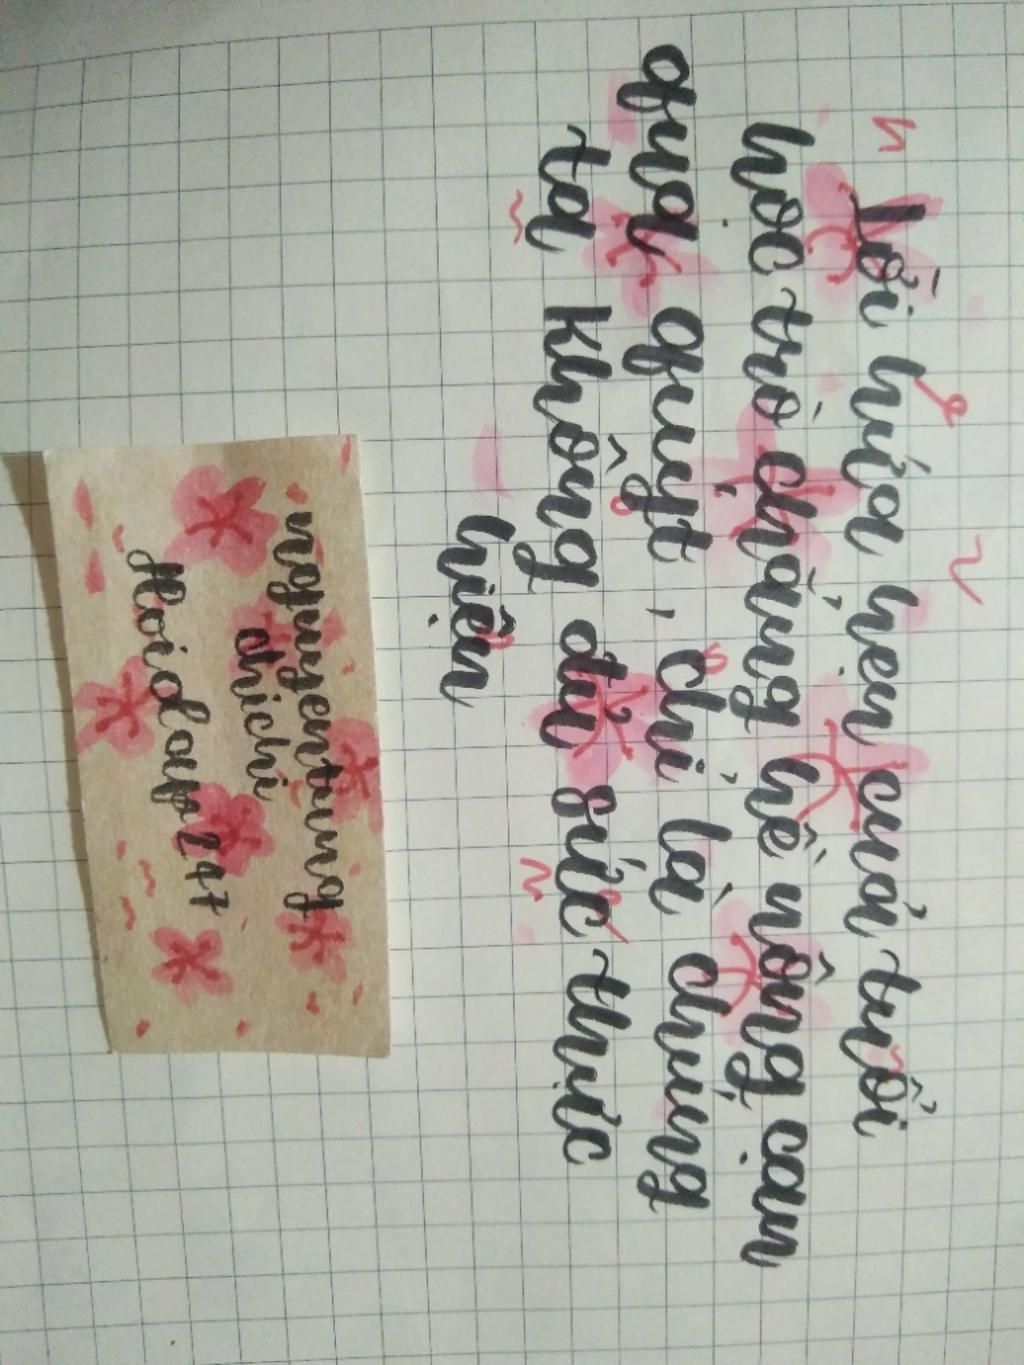 Lời hứa hẹn của tuổi
học trò chẳng hề nông cạn
quá quýt, chỉ là chúng
ta không đủ sức thực
hiện
nguyentung
chichi
Hoidap247